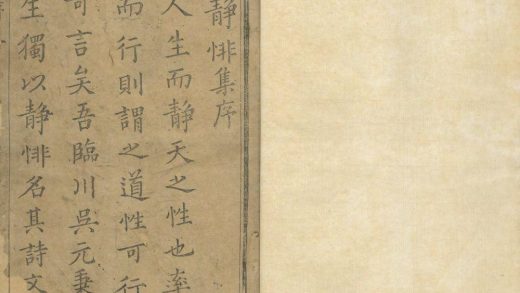 静悱集序
人生而静天之性也率
而行則謂之道性可行
可言矣吾臨川吳元秉
生獨以静悱名其詩文